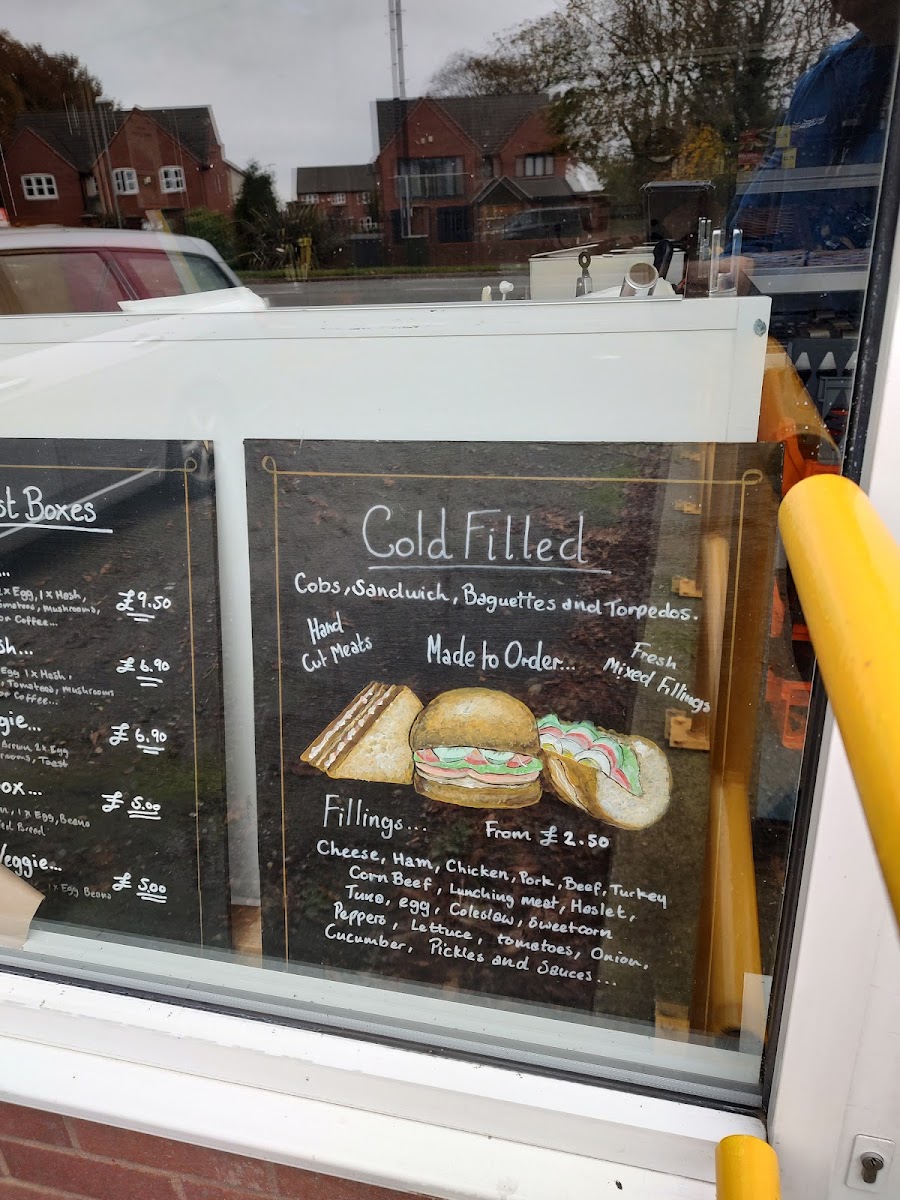 st Boxes
2x Egg, 1x Hash,
Tomatoes, Mushrooms,
or Coffee...
£9.50
sh...
Egg 1x Hash,
, Tomatoes, Mushrooms
or Coffee...
£6.90
gie...
Brown, 2x Egg
rooms, Toast
£6.90
ox...
1x Egg, Beans
ed Bread
£5.00
Veggie...
1x Egg Beans
£5.00
Cold Filled
Cobs, Sandwich, Baguettes and Torpedos.
Hand
Cut Meats
Made to Order...
Fresh
Mixed Fillings
Fillings...
From £2.50
Cheese, Ham, Chicken, Pork, Beef, Turkey
Corn Beef, Lunching meat, Haslet,
Tuna, egg, Coleslaw, Sweetcorn
Peppers, Lettuce, tomatoes, Onion,
Cucumber, Pickles and Sauces...